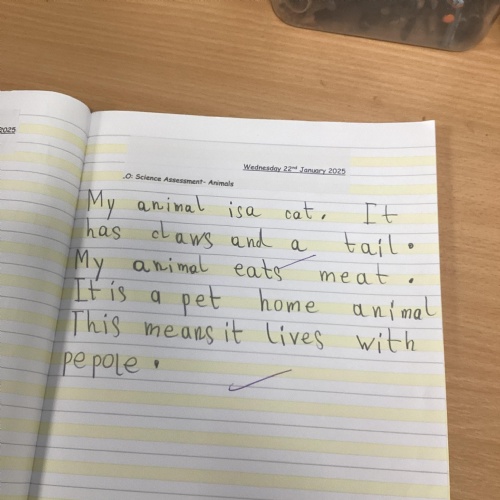 2025
Wednesday 22nd January 2025
.O: Science Assessment- Animals
My animal isa cat. It
has claws and a tail.
My animal eats meat.
It is a pet home animal
This means it lives with
pepole.